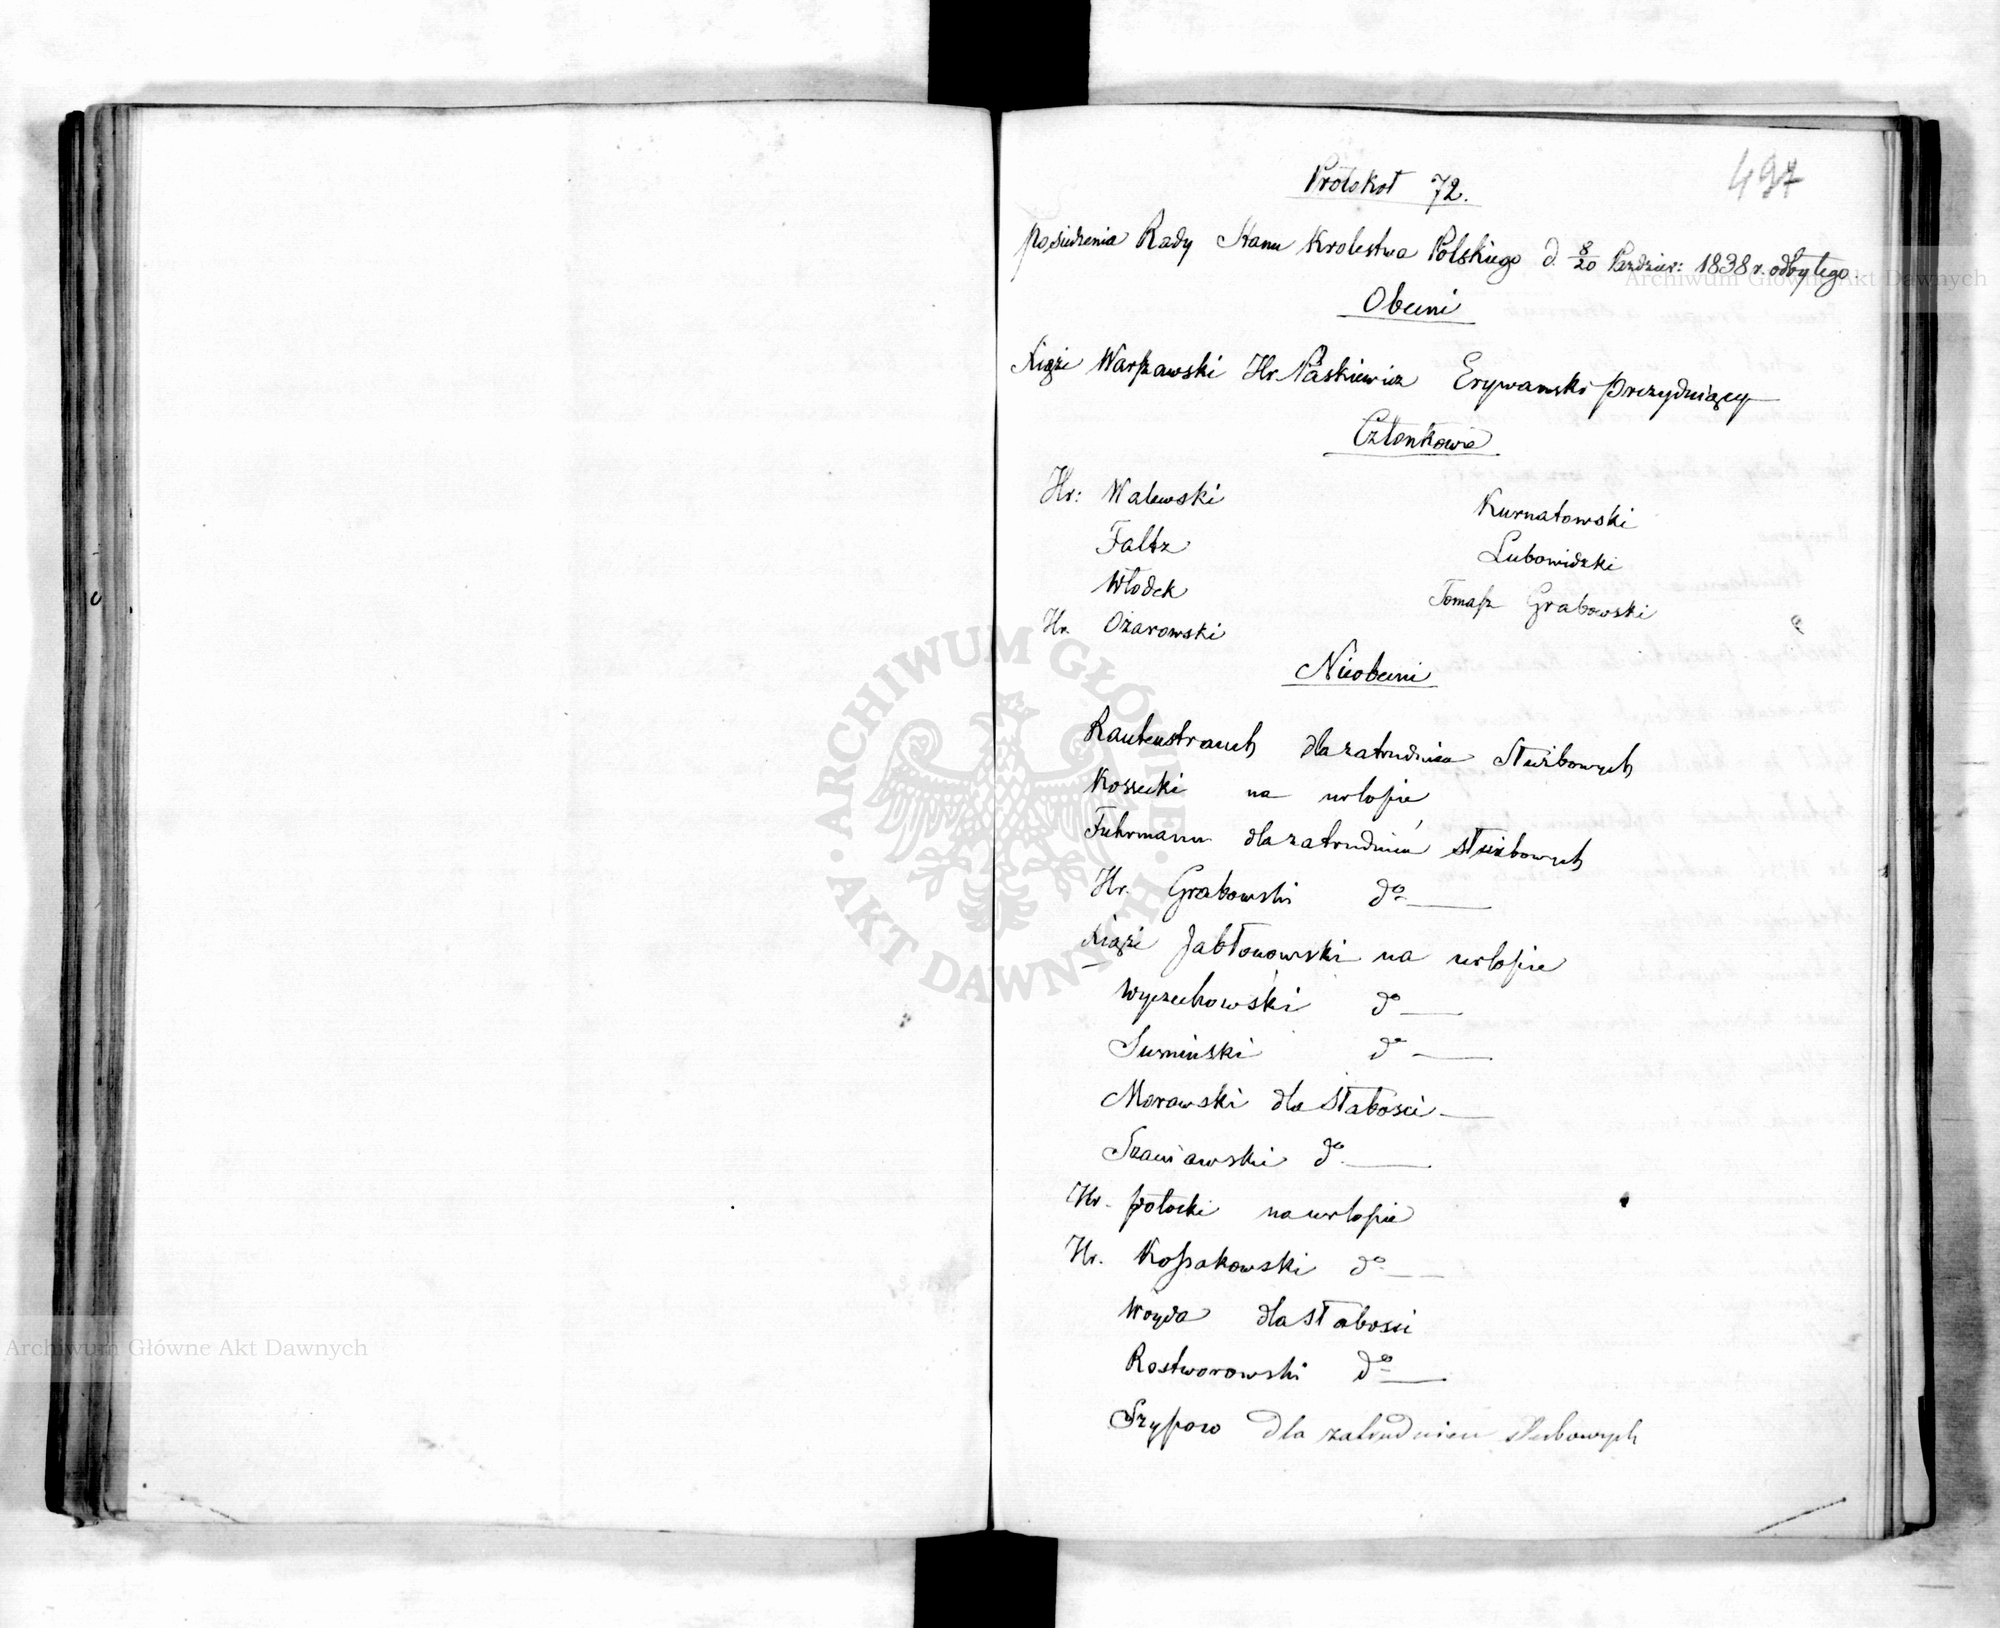 497
Protokoł 72.
posiedzenia Rady Stanu Krolestwa Polskiego d. 8/20 Pazdzier: 1838 r. odbytego.
Obecni
Xiąże Warszawski Hr. Paskiewicz Erywanski prezyduiący
Członkowie
Hr: Walewski
Faltz
Włodek
Hr. Ożarowski
Kurnatowski
Lubowidzki
Tomasz Grabowski
Nieobecni
Rautenstrauch dla zatrudnien Służbowych
Kossecki na urlopie
Fuhrmann dla zatrudnień służbowych
Hr. Grabowski do
Xiąże Jabłonowski na urlopie
Wyczechowski do
Suminski do
Morawski dla Słabosci
Szaniawski do
Hr. Potocki na urlopie
Hr. Kossakowski do
Woyda dla Słabosci
Rostworowski do
Szypow dla zatrudnien służbowych
Archiwum Główne Akt Dawnych
ARCHIWUM GŁÓWNE · AKT DAWNYCH ·
Archiwum Główne Akt Dawnych